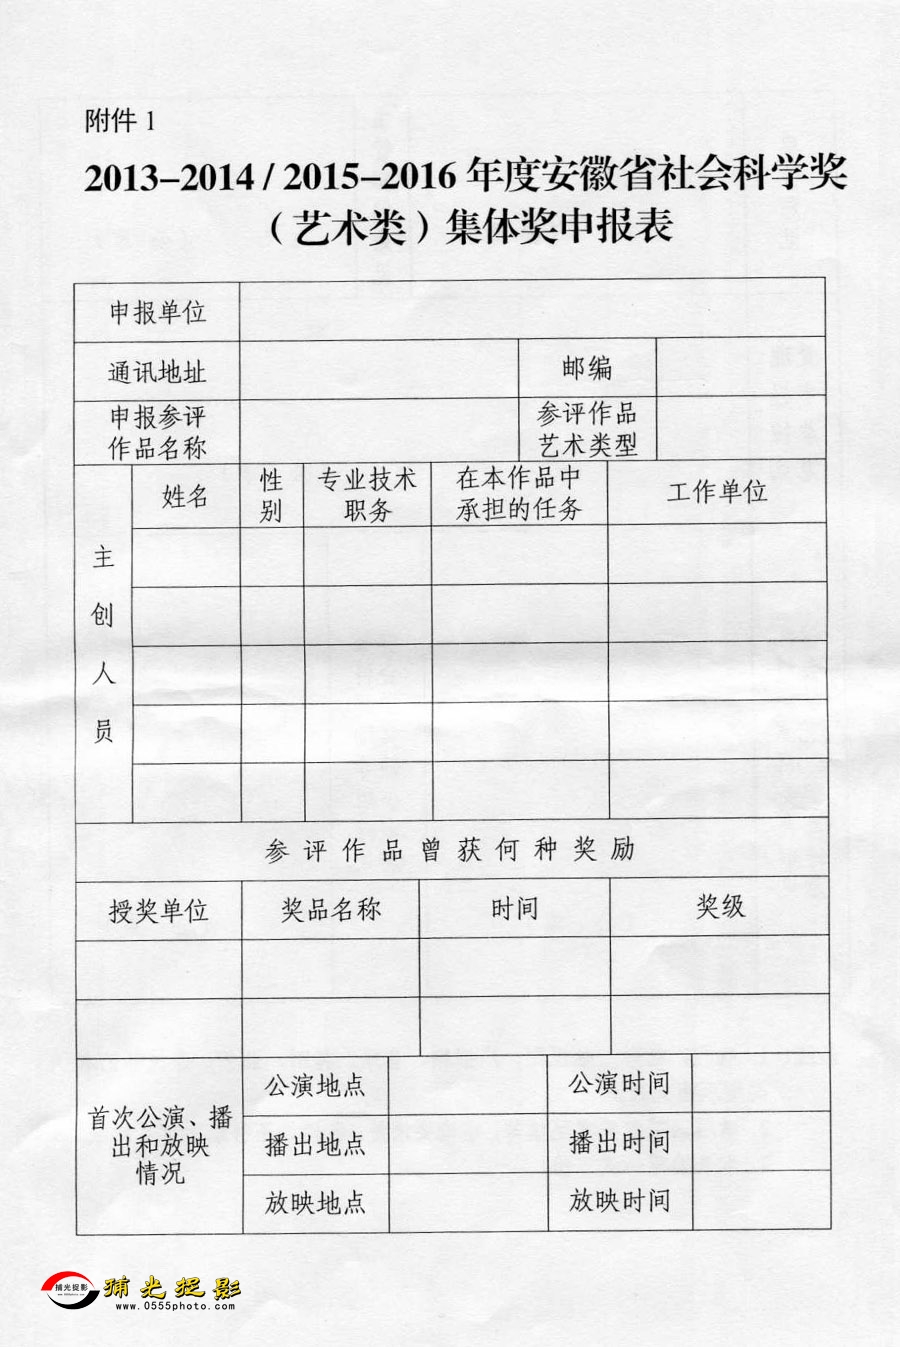 附件 1
2013-2014 / 2015-2016 年度安徽省社会科学奖
（艺术类）集体奖申报表
申报单位
通讯地址
邮编
申报参评
作品名称
参评作品
艺术类型
主创人员
姓名
性别
专业技术
职务
在本作品中
承担的任务
工作单位
参评作品曾获何种奖励
授奖单位
奖品名称
时间
奖级
首次公演、播
出和放映
情况
公演地点
公演时间
播出地点
播出时间
放映地点
放映时间
捕光捉影
捕光捉影
www.0555photo.com